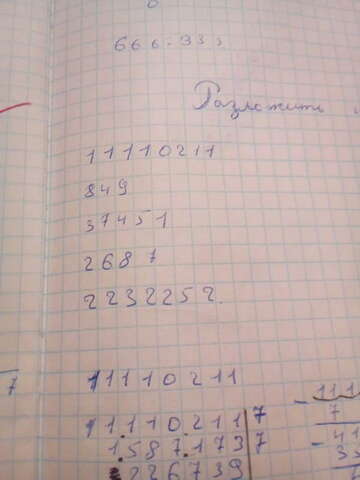 666:33
Разложить
11110211
849
37451
2687
2232252
11110211
11110211 7
1587173 7
226739
7
- 111
7
- 41
35